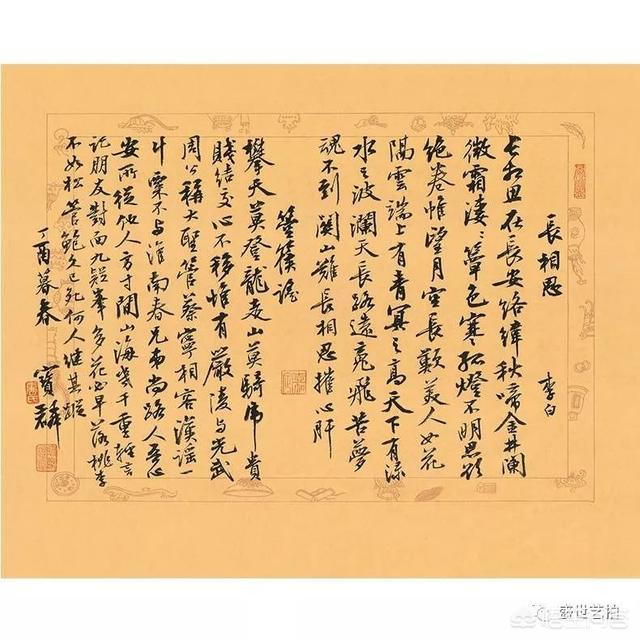 長相思
李白
長相思在長安絡緯秋啼金井闌
微霜淒〻簟色寒孤燈不明思欲
絶卷帷望月空長歎美人如花
隔雲端上有青冥之高天下有淥
水之波瀾天長路遠魂飛苦夢
魂不到関山難長相思摧心肝
箜篌謡
攀天莫登龍走山莫騎虎貴
賤結交心不移惟有嚴陵与光武
周公稱大聖管蔡寧相容漢謡一
斗粟不与淮南舂兄弟尚路人吾心
安所從他人方寸間山海幾千重輕言
託朋友對面九疑峯多花必早落桃李
不如松管鮑久已死何人继其蹤
丁酉暮春
寶麟
盛世艺拍